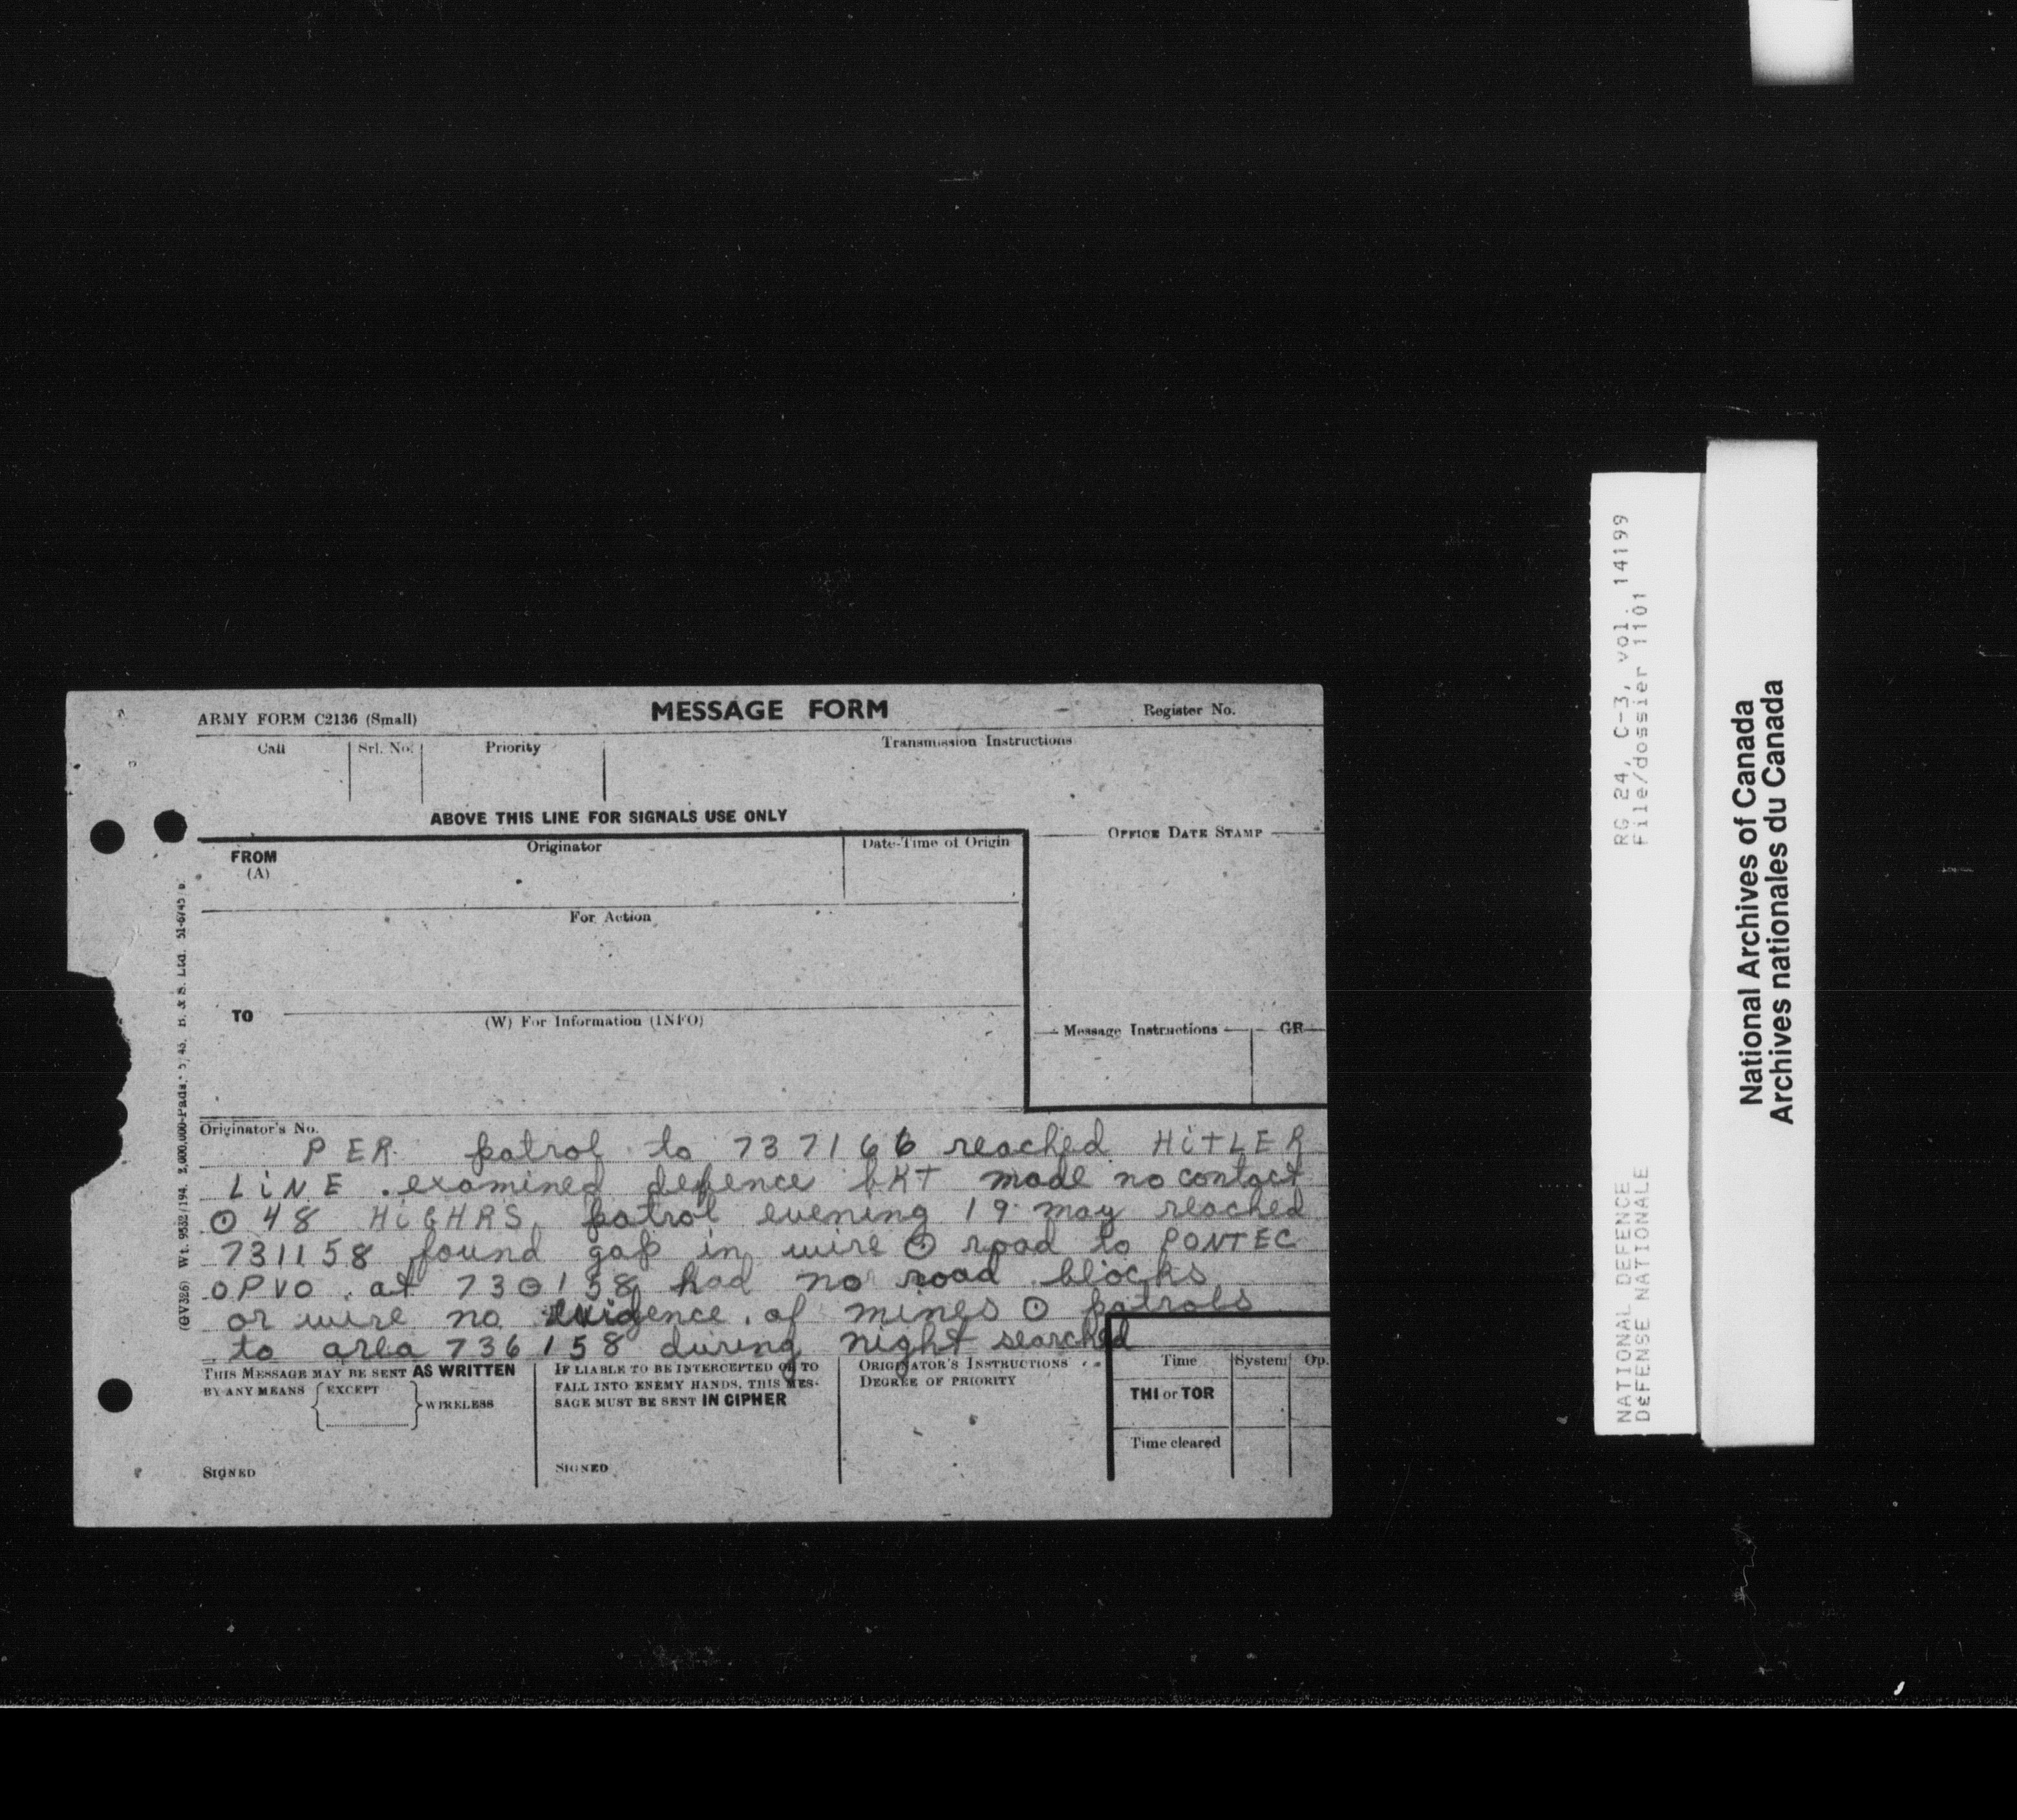 ARMY FORM C2136 (Small) MESSAGE FORM Register No.
Call Srl. No. Priority Transmission Instructions
ABOVE THIS LINE FOR SIGNALS USE ONLY
OFFICE DATE STAMP
FROM (A) Originator Date-Time of Origin
For Action
TO
(W) For Information (INFO)
Message Instructions GR
Originator's No.
PER patrol to 737166 reached HiTLER
LiNE . examined defence bKT made no contact
⊙ 48 HiGHRS patrol evening 19 may reached
731158 found gap in wire ⊙ road to PONTEC
OPVO . at 730158 had no road blocks
or wire no evidence . of mines ⊙ patrols
to area 736158 during night searched
THIS MESSAGE MAY BE SENT AS WRITTEN
BY ANY MEANS EXCEPT WIRELESS
SIGNED
IF LIABLE TO BE INTERCEPTED OR TO
FALL INTO ENEMY HANDS, THIS MES-
SAGE MUST BE SENT IN CIPHER
SIGNED
ORIGINATOR'S INSTRUCTIONS
DEGREE OF PRIORITY
Time System Op.
THI or TOR
Time cleared
(GV326) Wt. 9532/194. 2,000,000 Pads. B. & S. Ltd. 51-6745
RG 24, C-3, vol. 14199
File/dossier 1101
NATIONAL DEFENCE
DÉFENSE NATIONALE
National Archives of Canada
Archives nationales du Canada